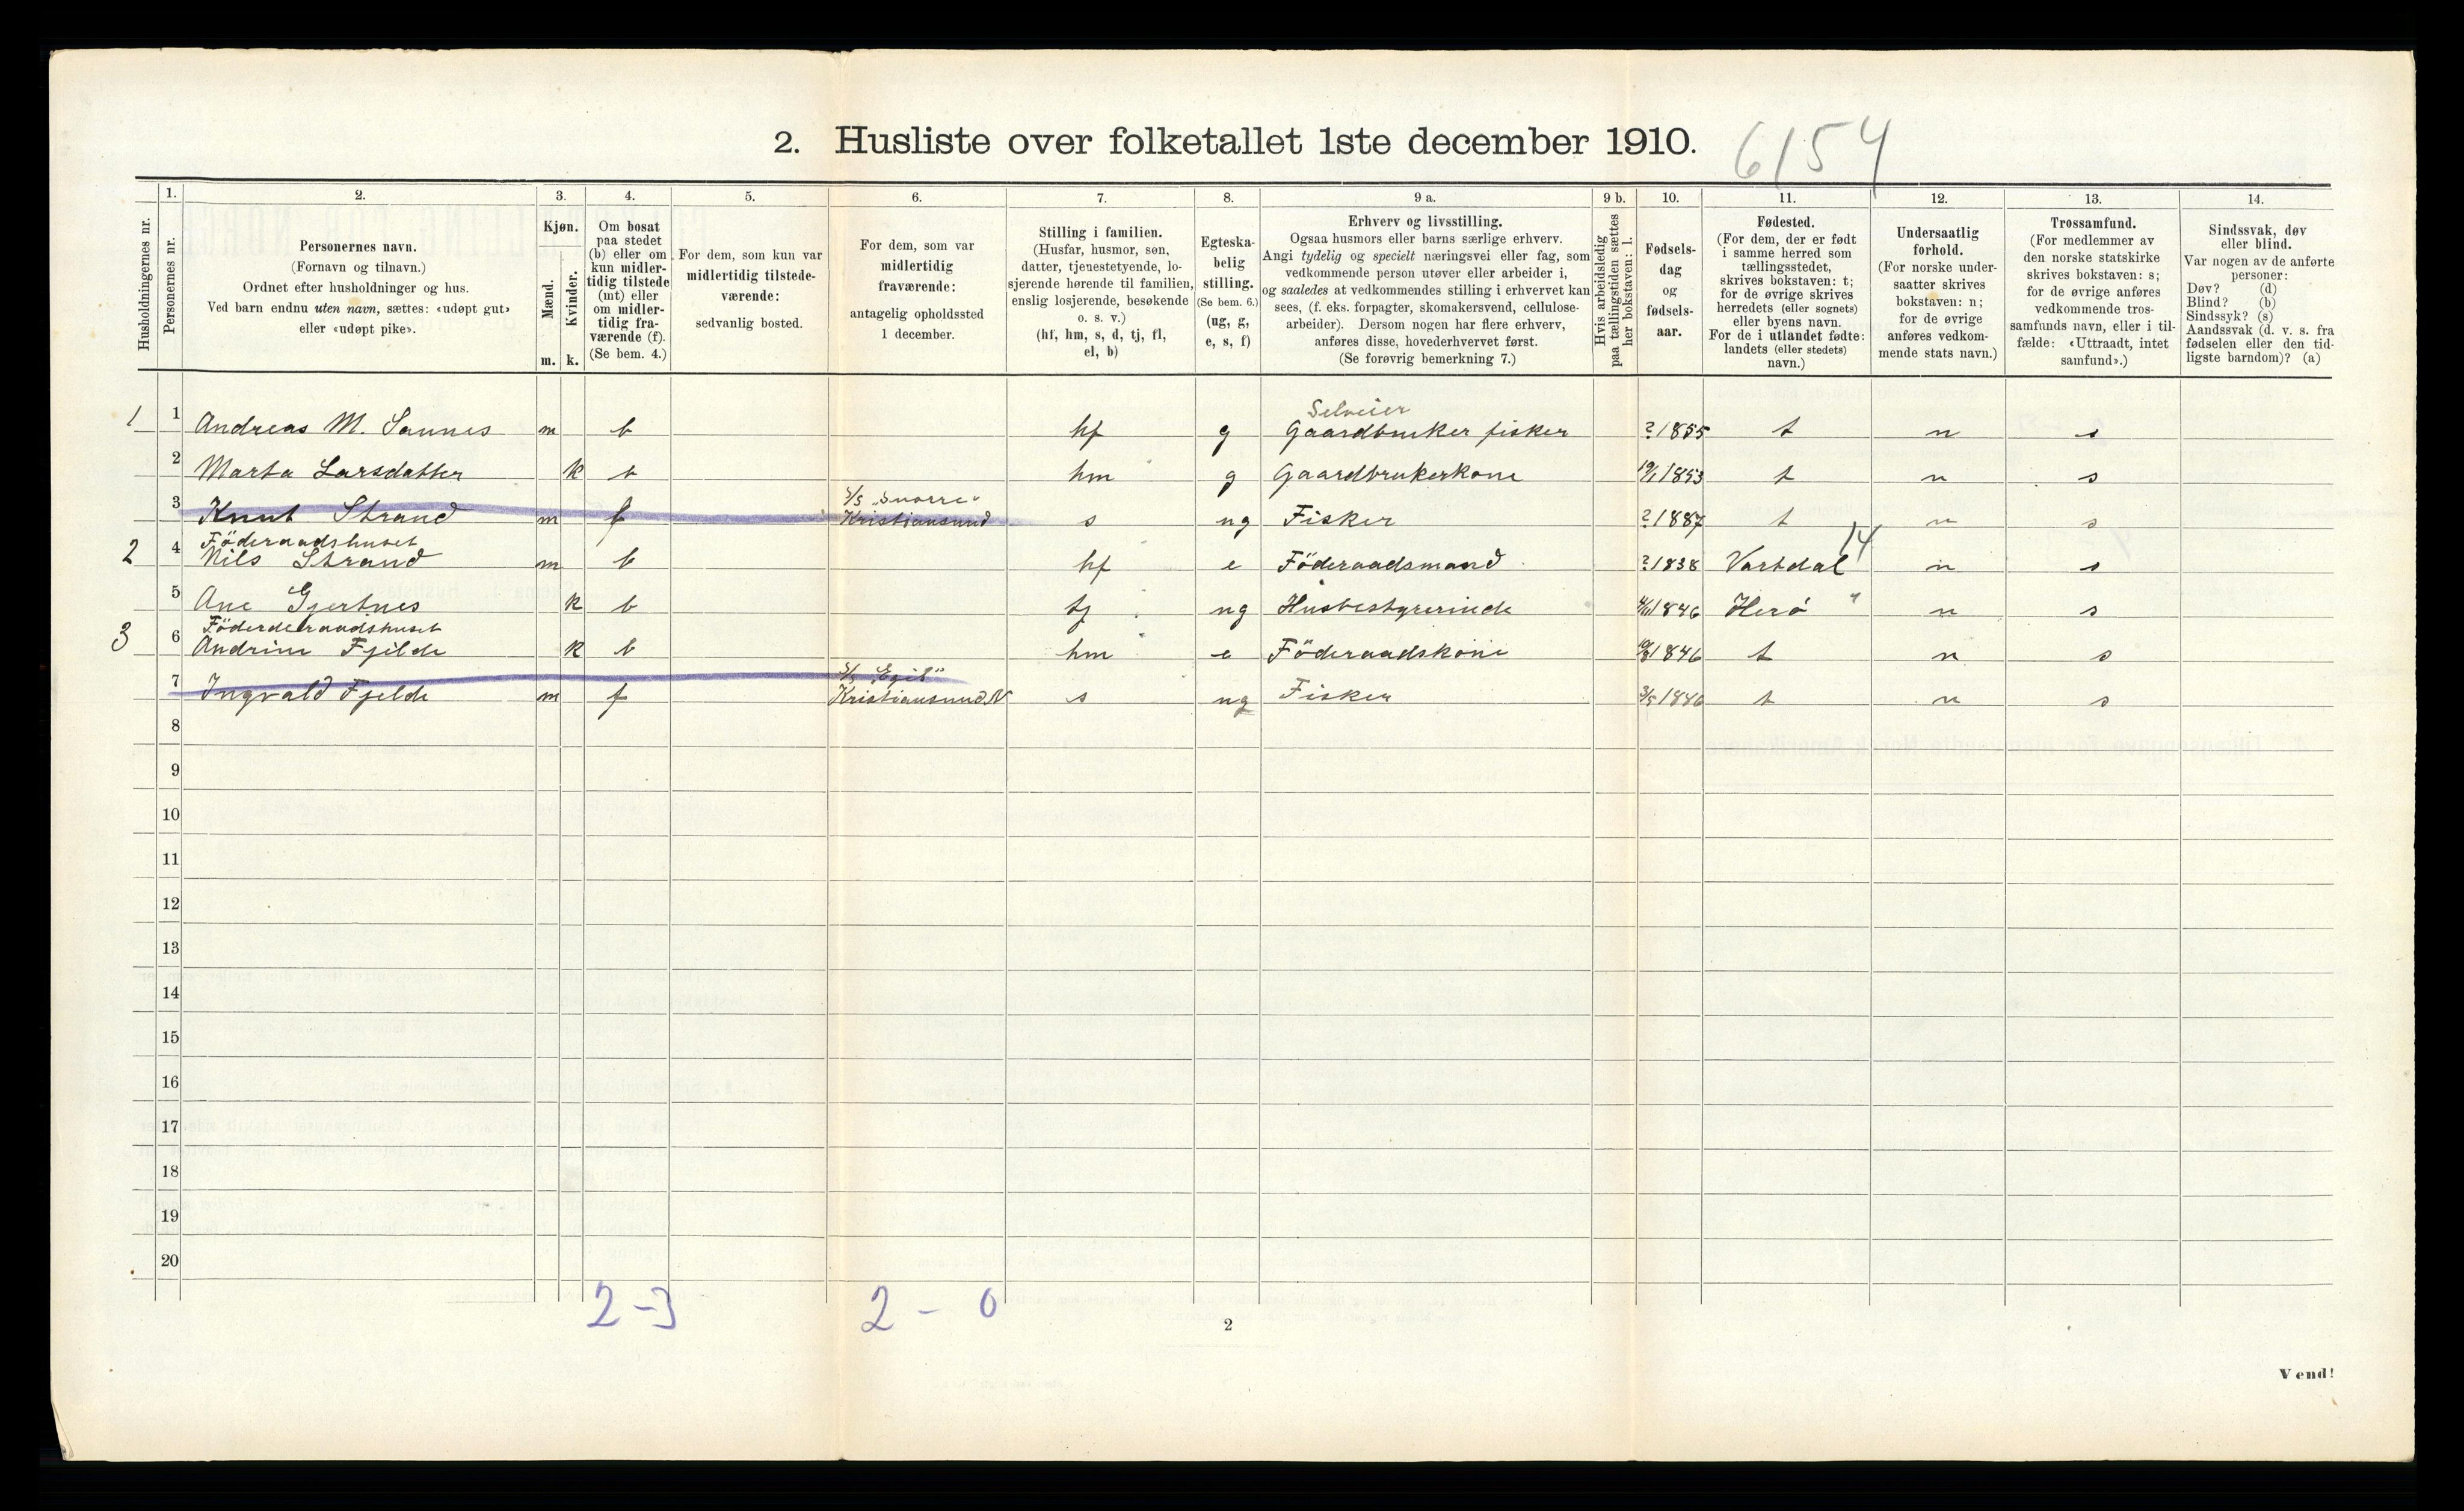 2. Husliste over folketallet 1ste december 1910.
6154
Husholdningernes nr.
1.
Personernes nr.
2.
Personernes navn.
(Fornavn og tilnavn.)
Ordnet efter husholdninger og hus.
Ved barn endnu uten navn, sættes: «udøpt gut»
eller «udøpt pike».
3.
Kjøn.
Mænd.
Kvinder.
m. k.
4.
Om bosat
paa stedet
(b) eller om
kun midler-
tidig tilstede
(mt) eller
om midler-
tidig fra-
værende (f).
(Se bem. 4.)
5.
For dem, som kun var
midlertidig tilstede-
værende:
sedvanlig bosted.
6.
For dem, som var
midlertidig
fraværende:
antagelig opholdssted
1 december.
7.
Stilling i familien.
(Husfar, husmor, søn,
datter, tjenestetyende, lo-
sjerende hørende til familien,
enslig losjerende, besøkende
o. s. v.)
(hf, hm, s, d, tj, fl,
el, b)
8.
Egteska-
belig
stilling.
(Se bem. 6.)
(ug, g,
e, s, f)
9 a.
Erhverv og livsstilling.
Ogsaa husmors eller barns særlige erhverv.
Angi tydelig og specielt næringsvei eller fag, som
vedkommende person utøver eller arbeider i,
og saaledes at vedkommendes stilling i erhvervet kan
sees, (f. eks. forpagter, skomakersvend, cellulose-
arbeider). Dersom nogen har flere erhverv,
anføres disse, hovederhvervet først.
(Se forøvrig bemerkning 7.)
9 b.
Hvis arbeidsledig
paa tællingstiden sættes
her bokstaven: l.
10.
Fødsels-
dag
og
fødsels-
aar.
11.
Fødested.
(For dem, der er født
i samme herred som
tællingsstedet,
skrives bokstaven: t;
for de øvrige skrives
herredets (eller sognets)
eller byens navn.
For de i utlandet fødte:
landets (eller stedets)
navn.)
12.
Undersaatlig
forhold.
(For norske under-
saatter skrives
bokstaven: n;
for de øvrige
anføres vedkom-
mende stats navn.)
13.
Trossamfund.
(For medlemmer av
den norske statskirke
skrives bokstaven: s;
for de øvrige anføres
vedkommende tros-
samfunds navn, eller i til-
fælde: «Uttraadt, intet
samfund».)
14.
Sindssvak, døv
eller blind.
Var nogen av de anførte
personer:
Døv? (d)
Blind? (b)
Sindssyk? (s)
Aandssvak (d. v. s. fra
fødselen eller den tid-
ligste barndom)? (a)
Selveier
1 1 Andreas M. Saunes m b hf g Gaardbruker fisker ? 1855 t n s
2 Marta Larsdatter k b hm g Gaardbrukerkone 1853 t n s
S/S "Snorre"
3 Knut Strand m f Kristiansund s ug Fisker ? 1887 t n s
Föderaadshuset 14
2 4 Nils Strand m b hf e Föderaadsmand ? 1838 Vartdal n s
5 Ane Gjertnes k b tj ug Husbestyrerinde 1846 Herö " n s
Föderderaadshuset
3 6 Andrine Fjelde k b hm e Föderaadskone 1846 t n s
S/S "Egil"
7 Ingvald Fjelde m f Kristiansund N s ug Fisker 3/5 1886 t n s
8
9
10
11
12
13
14
15
16
17
18
19
20
2-3 2-0
2
Vend!